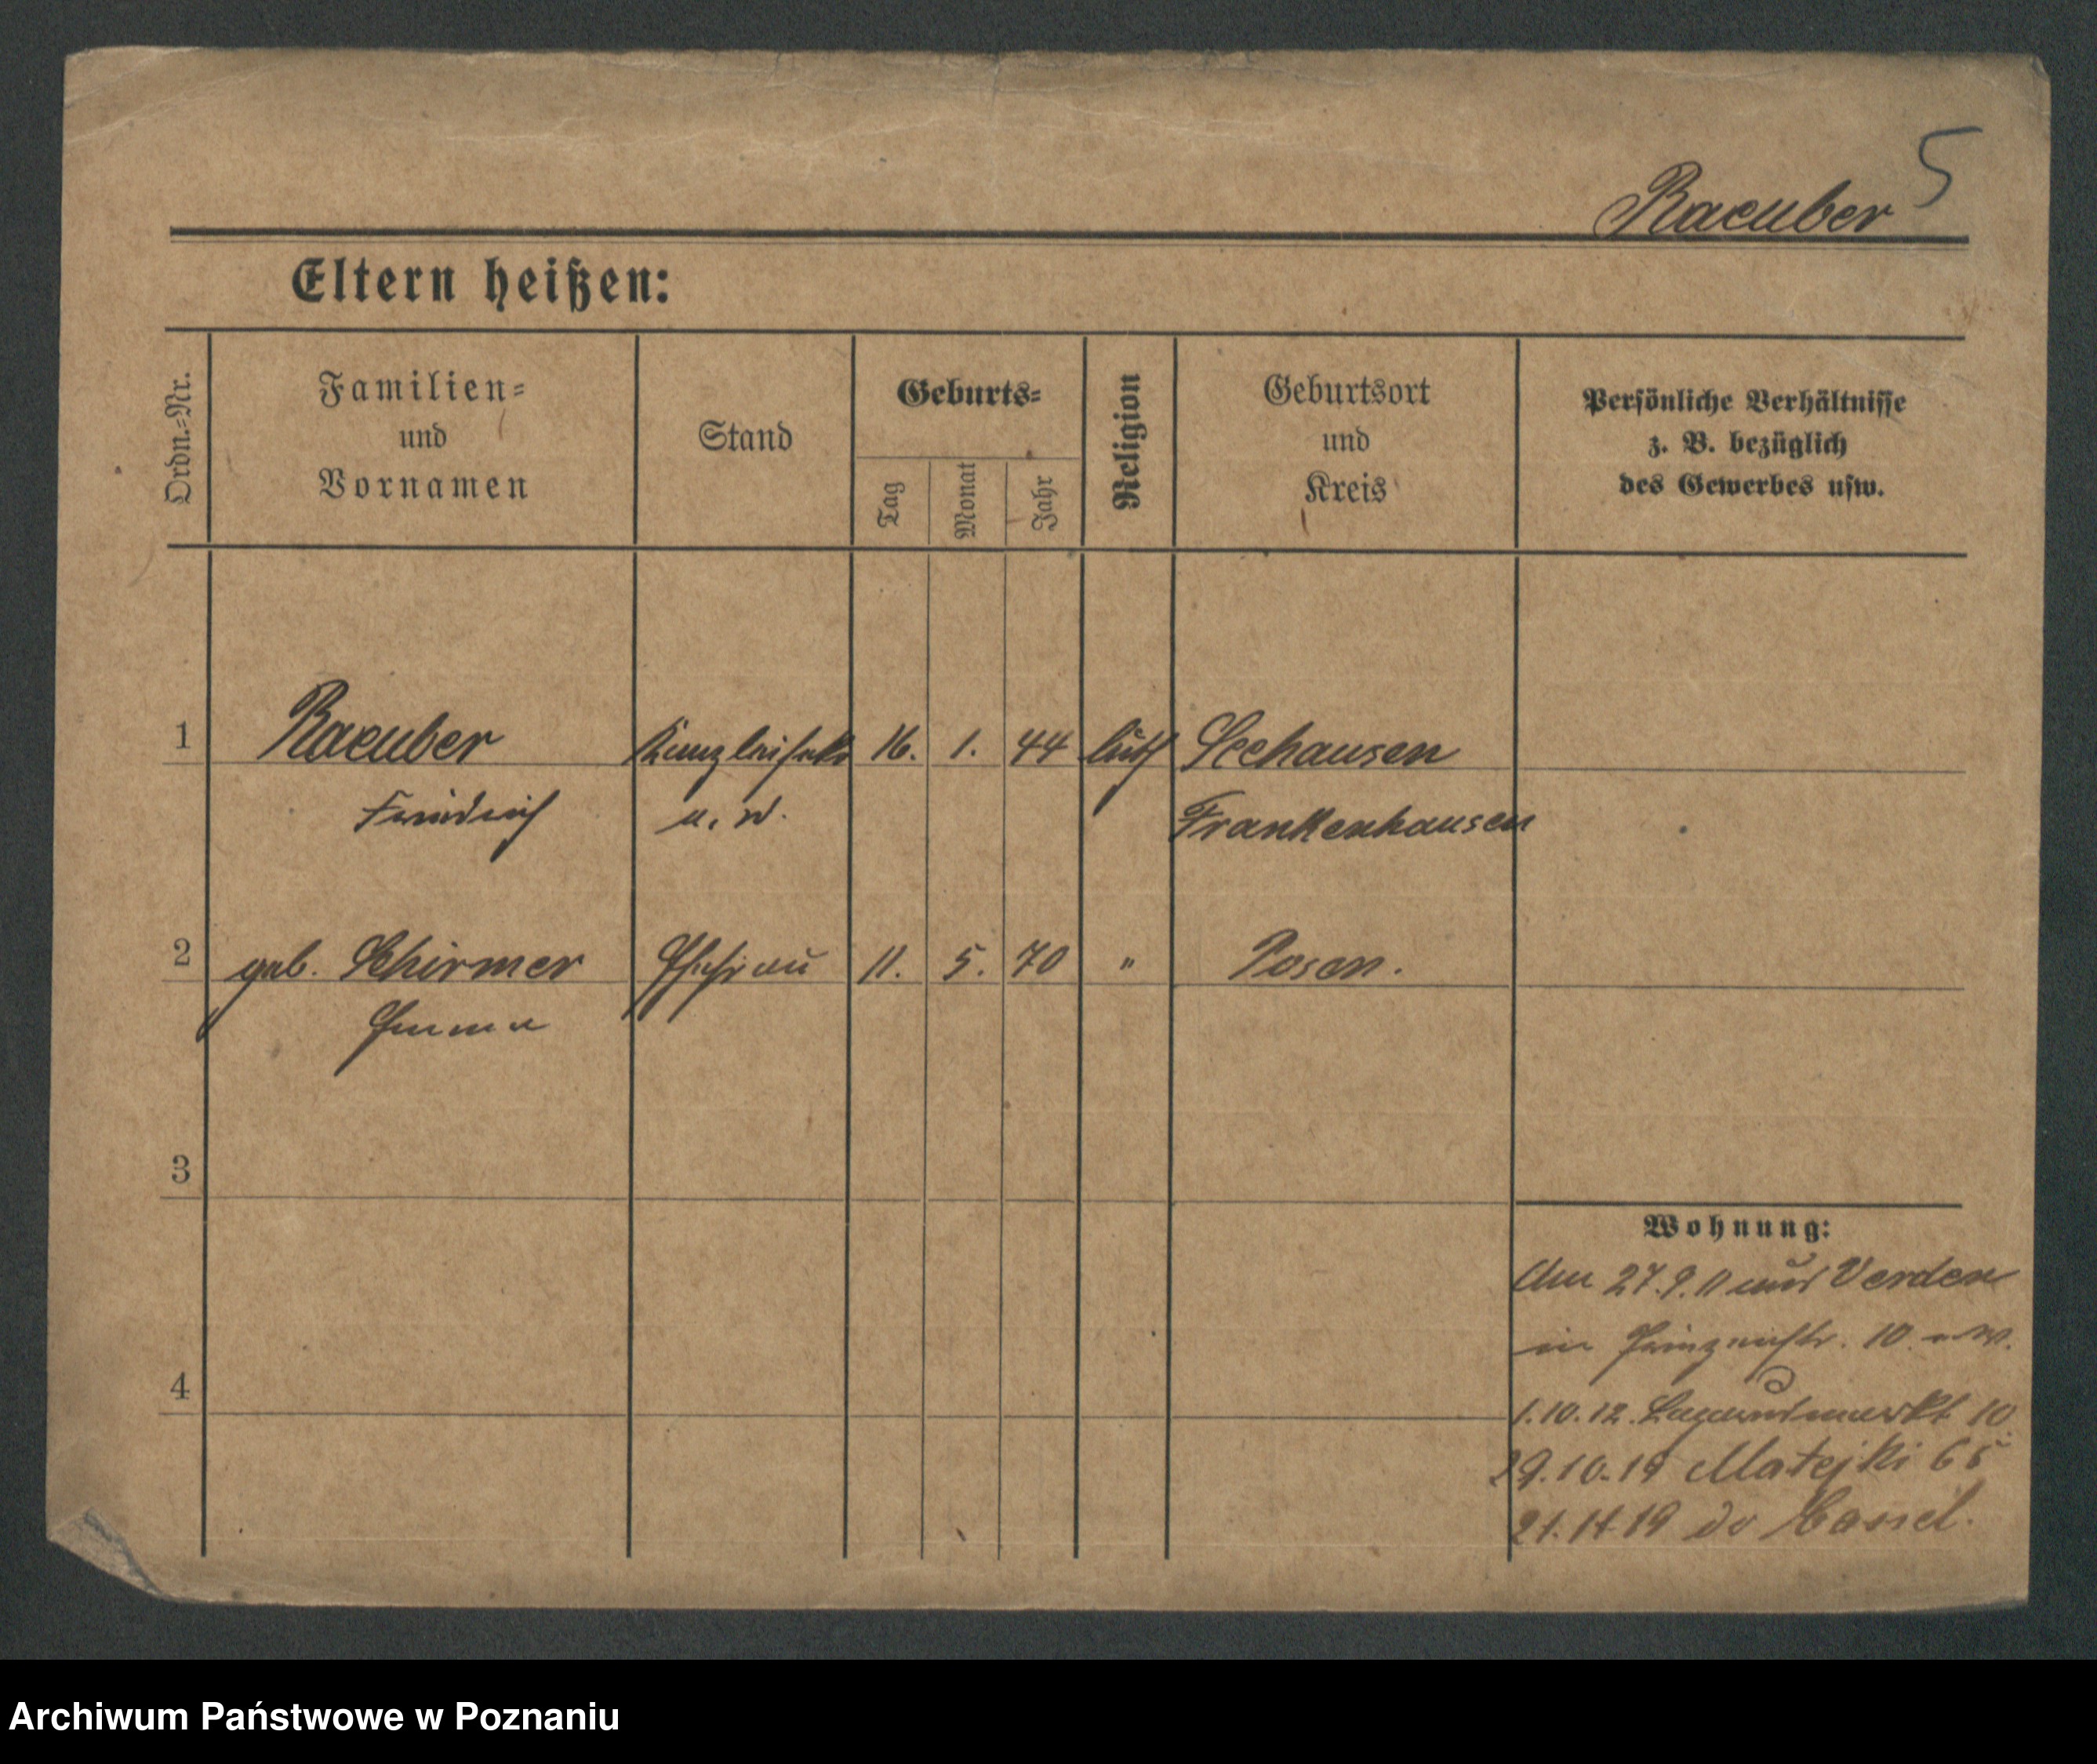 5
Raeuber
Eltern heißen:
Ordn.-Nr.
Familien-
und
Vornamen
Stand
Geburts-
Tag
Monat
Jahr
Religion
Geburtsort
und
Kreis
Persönliche Verhältnisse
z. B. bezüglich
des Gewerbes usw.
1 Raeuber 16. 1. 44 luth Seehausen
Friedrich Frankenhausen
2 geb. Schirmer Ehefrau 11. 5. 70 " Posen.
Emma
3
4
Wohnung:
Am 27.9.11 aus Verden
in Prinzenstr. 10
1.10.12. 10
29.10.19 Matejki 65
21.11 19 do Cassel.
Archiwum Państwowe w Poznaniu